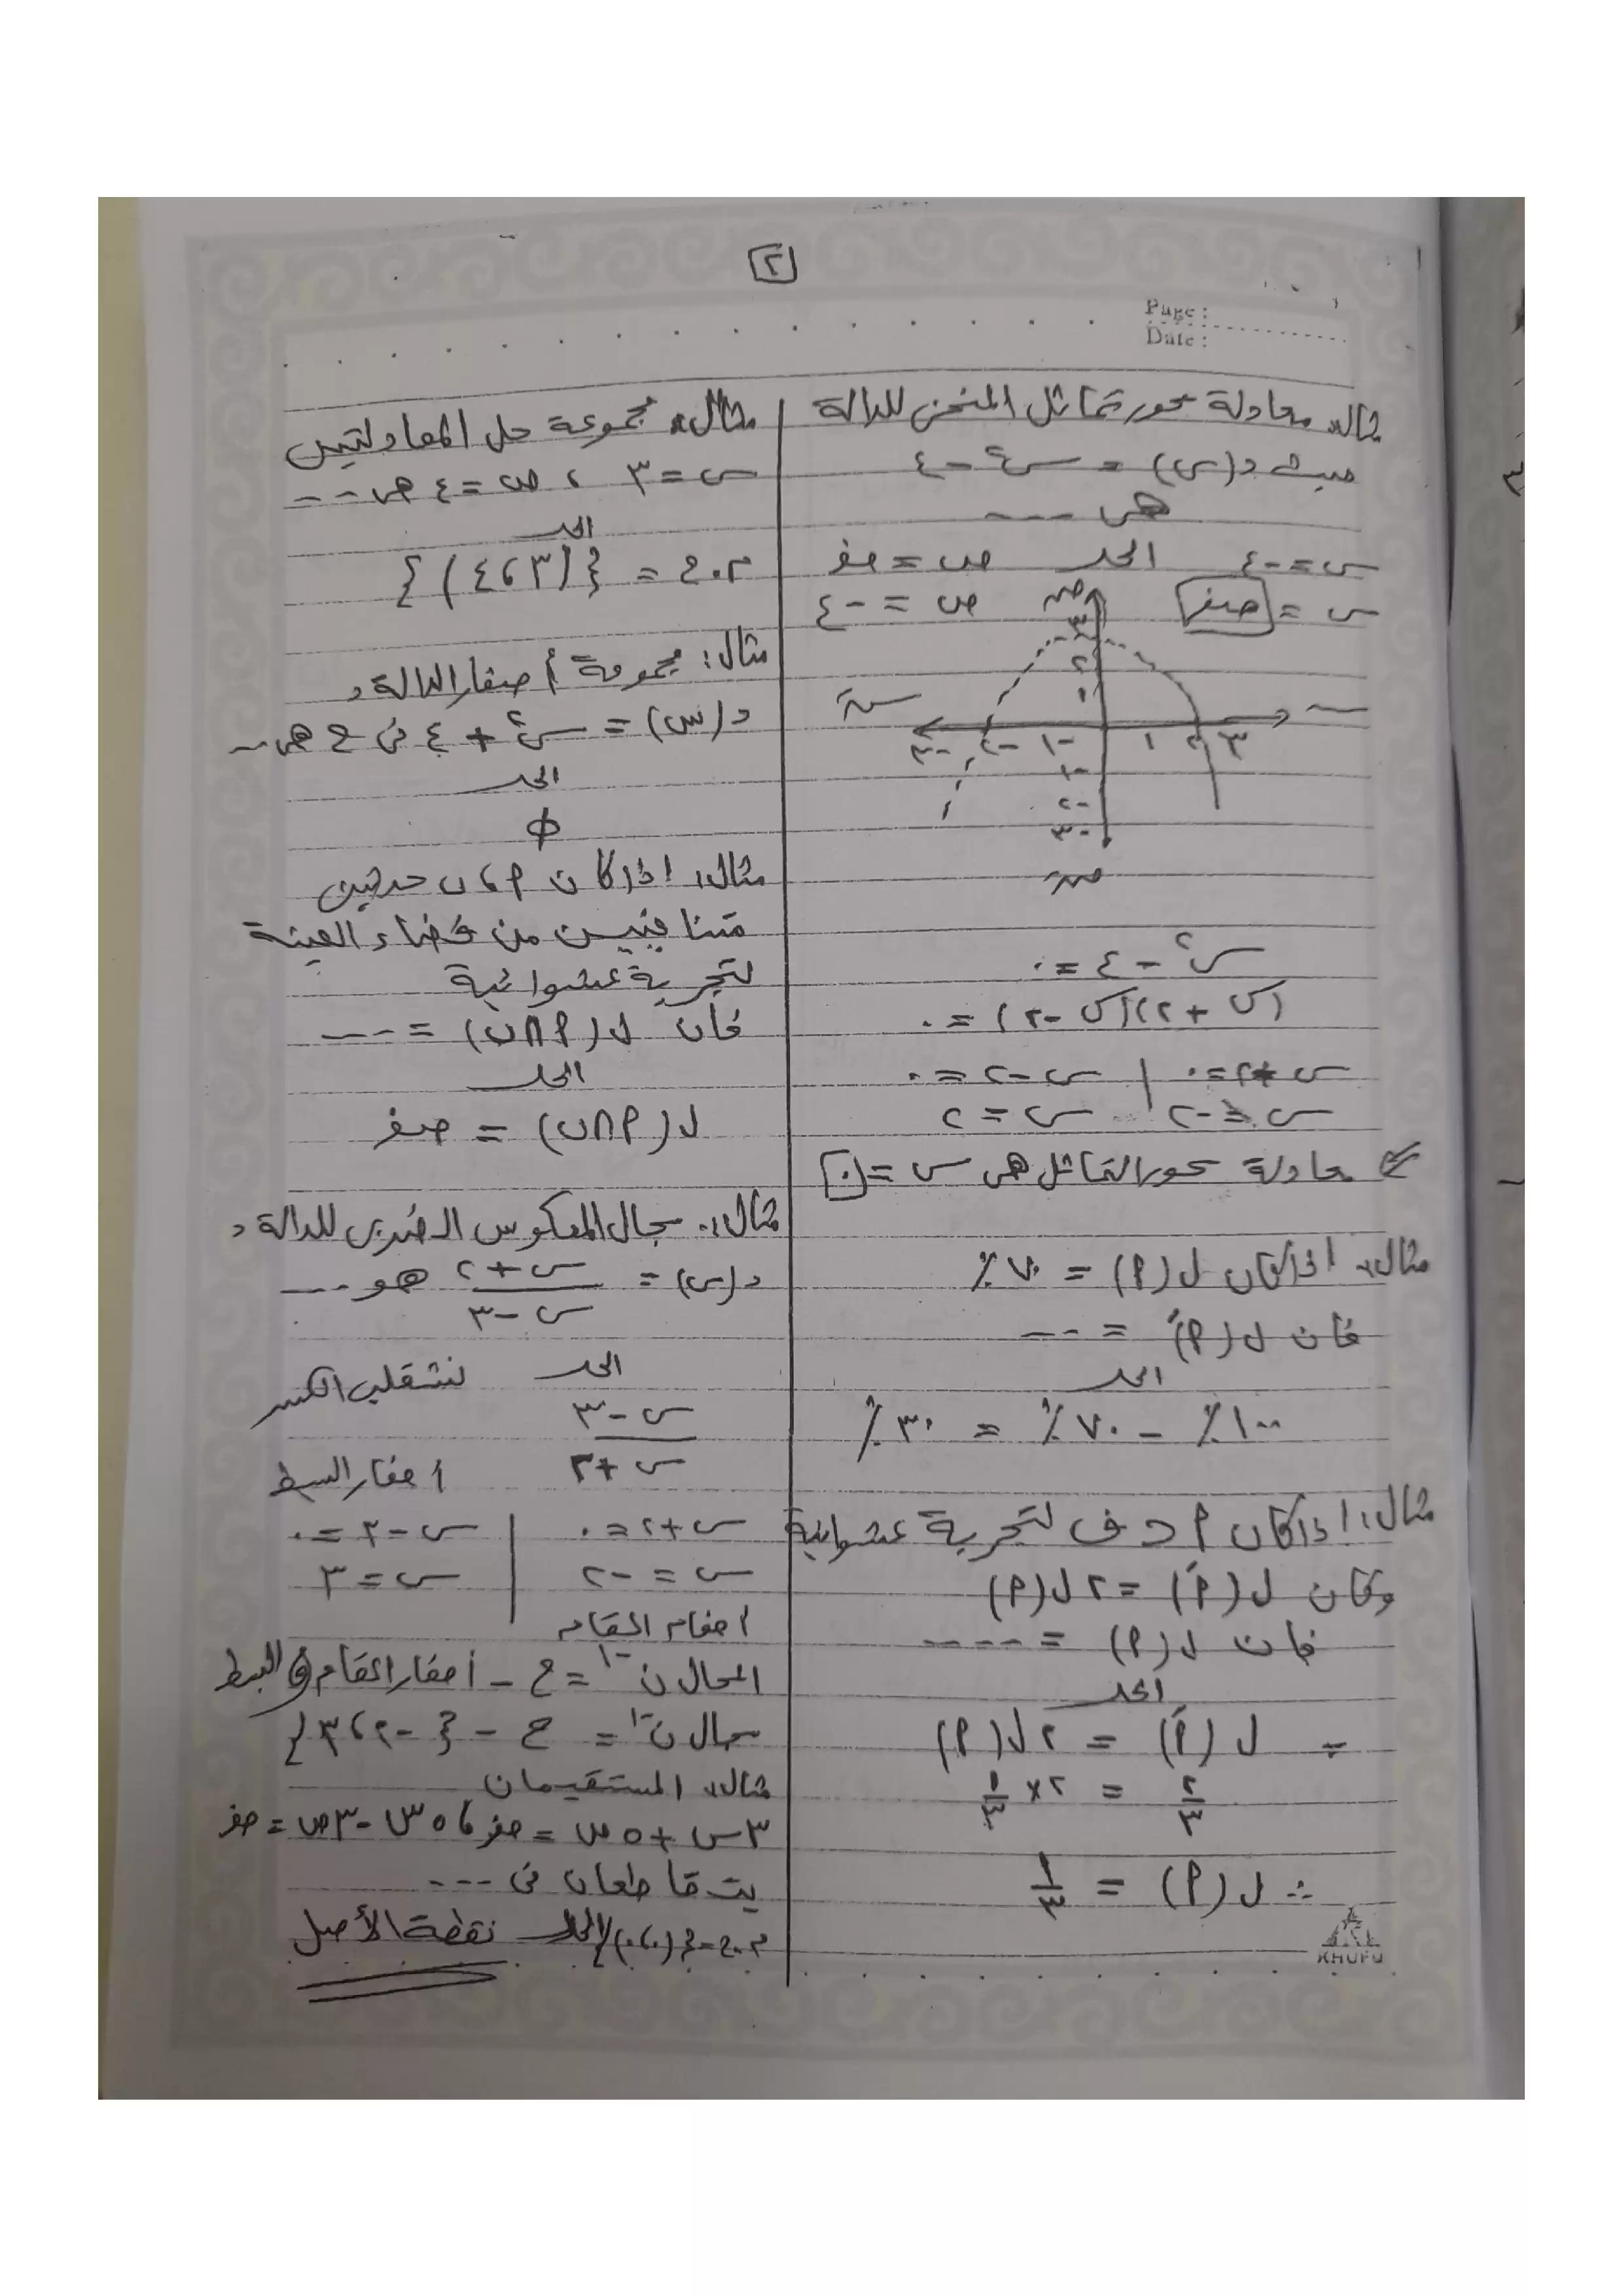 [٢]
Page :
Date :
مثال: معادلة محور تماثل المنحنى للدالة
حيث د(س) = س٢ - ٤
هى ---
س = -٤ الحل ص = صفر
س = صفر ص = -٤
ص
٣
٢
١
سَ س
-٣ -٢ -١ ١ ٢ ٣
-١
-٢
-٣
صَ
س٢ - ٤ = ٠
(س + ٢)(س - ٢) = ٠
س + ٢ = ٠ | س - ٢ = ٠
س = -٢ | س = ٢
معادلة محور التماثل هى س = [٠]
مثال: اذا كان ل(٩) = ٧٠٪
فان ل(٩َ) = ---
الحل
١٠٠٪ - ٧٠٪ = ٣٠٪
مثال: اذا كان ٩ د ف لتجربة عشوائية
وكان ل(٩َ) = ٢ ل(٩)
فان ل(٩) = ----
الحل
∵ ل(٩َ) = ٢ ل(٩)
٢/٣ = ٢ × ١/٣
∴ ل(٩) = ١/٣
KHUFU
مثال: مجموعة حل المعادلتين
س = ٣ ، ص = ٤ هى ---
الحل
م.ح = {(٣، ٤)}
مثال: مجموعة أصفار الدالة د
د(س) = س٢ + ٤ فى ح هى --
الحل
ϕ
مثال: اذا كان ٩، ب حدثين
متنافيين من فضاء العينة
لتجربة عشوائية
فان ل(٩∩ب) = ---
الحل
ل(٩∩ب) = صفر
مثال: مجال المعكوس الضربى للدالة د
د(س) = س + ٢ / س - ٣ هو ---
الحل نشقلب الكسر
س - ٣ / س + ٢
أصفار البسط
س + ٢ = ٠ | س - ٣ = ٠
س = -٢ | س = ٣
أصفار المقام
المجال ن-١ = ح - أصفار المقام و البسط
مجال ن-١ = ح - {-٢، ٣}
مثال: المستقيمان
٣س + ٥ص = صفر ، ٥س - ٣ص = صفر
يتقاطعان فى ---
م.ح = {(٠،٠)} الحل نقطة الأصل